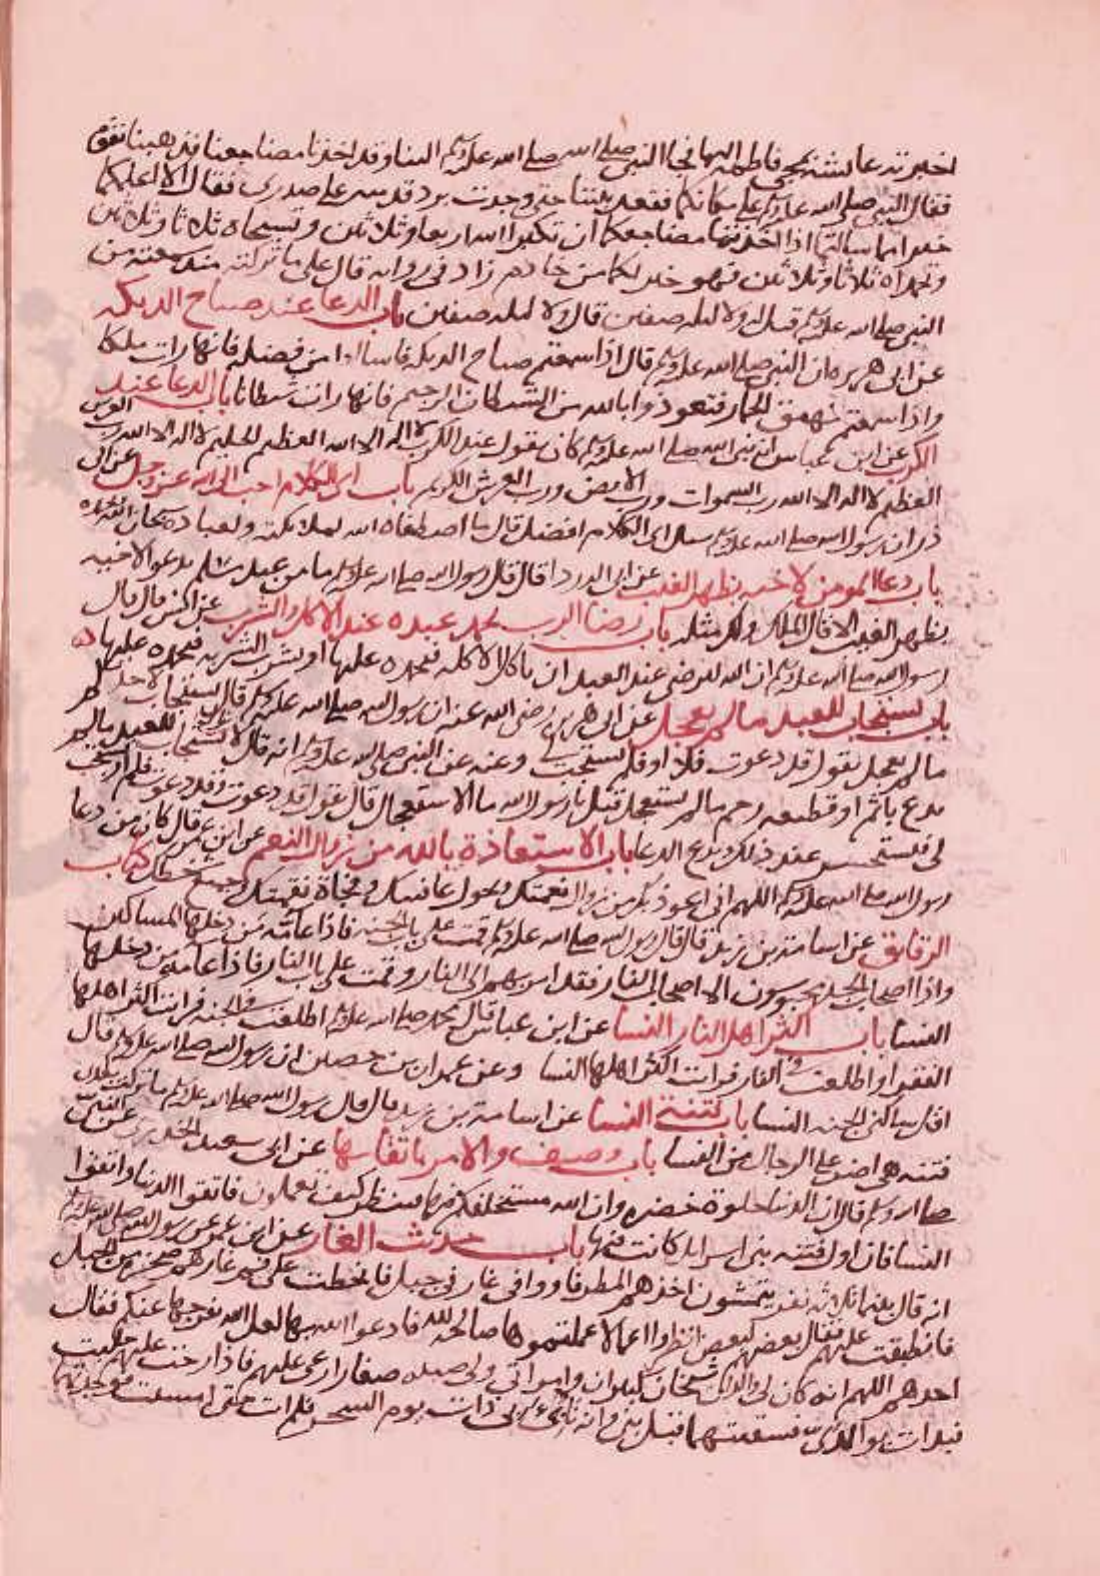 اخبرته عايشة بمجي فاطمه اليها فجا النبي صلى الله عليه وسلم الينا وقد اخذنا مضاجعنا فذهبنا نقوم
فقال النبي صلى الله عليه وسلم على مكانكما فقعد بيننا حتى وجدت برد قدميه على صدري فقال الا اعلمكما
خيرا مما سالتما اذا اخذتما مضاجعكما ان تكبرا الله اربعا وثلاثين وتسبحاه ثلاثا وثلاثين
وتحمداه ثلاثا وثلاثين فهو خير لكما من خادم زاد في روايه قال علي ما تركته منذ سمعته من
النبي صلى الله عليه وسلم قيل له ولا ليله صفين قال ولا ليله صفين باب الدعا عند صياح الديكه
عن ابي هريره ان النبي صلى الله عليه وسلم قال اذا سمعتم صياح الديكه فاسالوا الله من فضله فانها رات ملكا
واذا سمعتم نهيق الحمار فتعوذوا بالله من الشيطان الرجيم فانها رات شيطانا باب الدعا عند
الكرب عن ابن عباس ان نبي الله صلى الله عليه وسلم كان يقول عند الكرب لا اله الا الله العظيم الحليم لا اله الا الله رب العرش
العظيم لا اله الا الله رب السموات ورب الارض ورب العرش الكريم باب اي الكلام احب الى الله عز وجل عن ابي
ذر ان رسول الله صلى الله عليه وسلم سيل اي الكلام افضل قال ما اصطفاه الله لملايكته ولعباده سبحان الله وبحمده
باب دعا المومن لاخيه بظهر الغيب عن ابي الدردا قال قال رسول الله صلى الله عليه وسلم ما من عبد مسلم يدعو لاخيه
بظهر الغيب الا قال الملك ولك بمثله باب رضا الرب بحمد عبده عند الاكل والشرب عن انس قال قال
رسول الله صلى الله عليه وسلم ان الله ليرضى عن العبد ان ياكل الاكله فيحمده عليها او يشرب الشربه فيحمده عليها
باب يستجاب للعبد ما لم يعجل عن ابي هريره رضي الله عنه ان رسول الله صلى الله عليه وسلم قال يستجاب لاحدكم
ما لم يعجل يقول قد دعوت فلا او فلم يستجب لي وعنه عن النبي صلى الله عليه وسلم انه قال لا يزال يستجاب للعبد ما لم
يدع باثم او قطيعه رحم ما لم يستعجل قيل يا رسول الله ما الاستعجال قال يقول قد دعوت وقد دعوت فلم ار يستجب
لي فيستحسر عند ذلك ويدع الدعا باب الاستعاذة بالله من زوال النعم عن ابن عمر قال كان من دعا
رسول الله صلى الله عليه وسلم اللهم اني اعوذ بك من زوال نعمتك وتحول عافيتك وفجاة نقمتك وجميع سخطك كتاب
الرقايق عن اسامة بن زيد قال قال رسول الله صلى الله عليه وسلم قمت على باب الجنه فاذا عامة من دخلها المساكين
واذا اصحاب الجد محبوسون الا اصحاب النار فقد امر بهم الى النار وقمت على باب النار فاذا عامة من دخلها
النسا باب اكثر اهل النار النسا عن ابن عباس قال محمد صلى الله عليه وسلم اطلعت في الجنه فرايت اكثر اهلها
الفقرا واطلعت في النار فرايت اكثر اهلها النسا وعن عمران بن حصين ان رسول الله صلى الله عليه وسلم قال
اقل ساكني الجنه النسا باب فتنة النسا عن اسامة بن زيد قال قال رسول الله صلى الله عليه وسلم ما تركت بعدي
فتنه هي اضر على الرجال من النسا باب وصيف والامر باتقايها عن ابي سعيد الخدري عن النبي
صلى الله عليه وسلم قال ان الدنيا حلوة خضره وان الله مستخلفكم فيها فينظر كيف تعملون فاتقوا الدنيا واتقوا
النسا فان اول فتنه بني اسرايل كانت فيها باب حديث الغار عن ابن عمر عن رسول الله صلى الله عليه وسلم
انه قال بينما ثلاثه نفر يتمشون اخذهم المطر فاووا في غار في جبل فانحطت على فم غارهم صخره من الجبل
فانطبقت عليهم فقال بعضهم لبعض انظروا اعمالا عملتموها صالحة لله فادعوا الله بها لعل الله يفرجها عنكم فقال
احدهم اللهم انه كان لي والدان شيخان كبيران وامراتي ولي صبيه صغار ارعى عليهم فاذا ارحت عليهم حلبت
فبدات بوالدي فسقيتهما قبل بني وانه ناى بي ذات يوم الشجر فلم ات حتى امسيت فوجدتهما